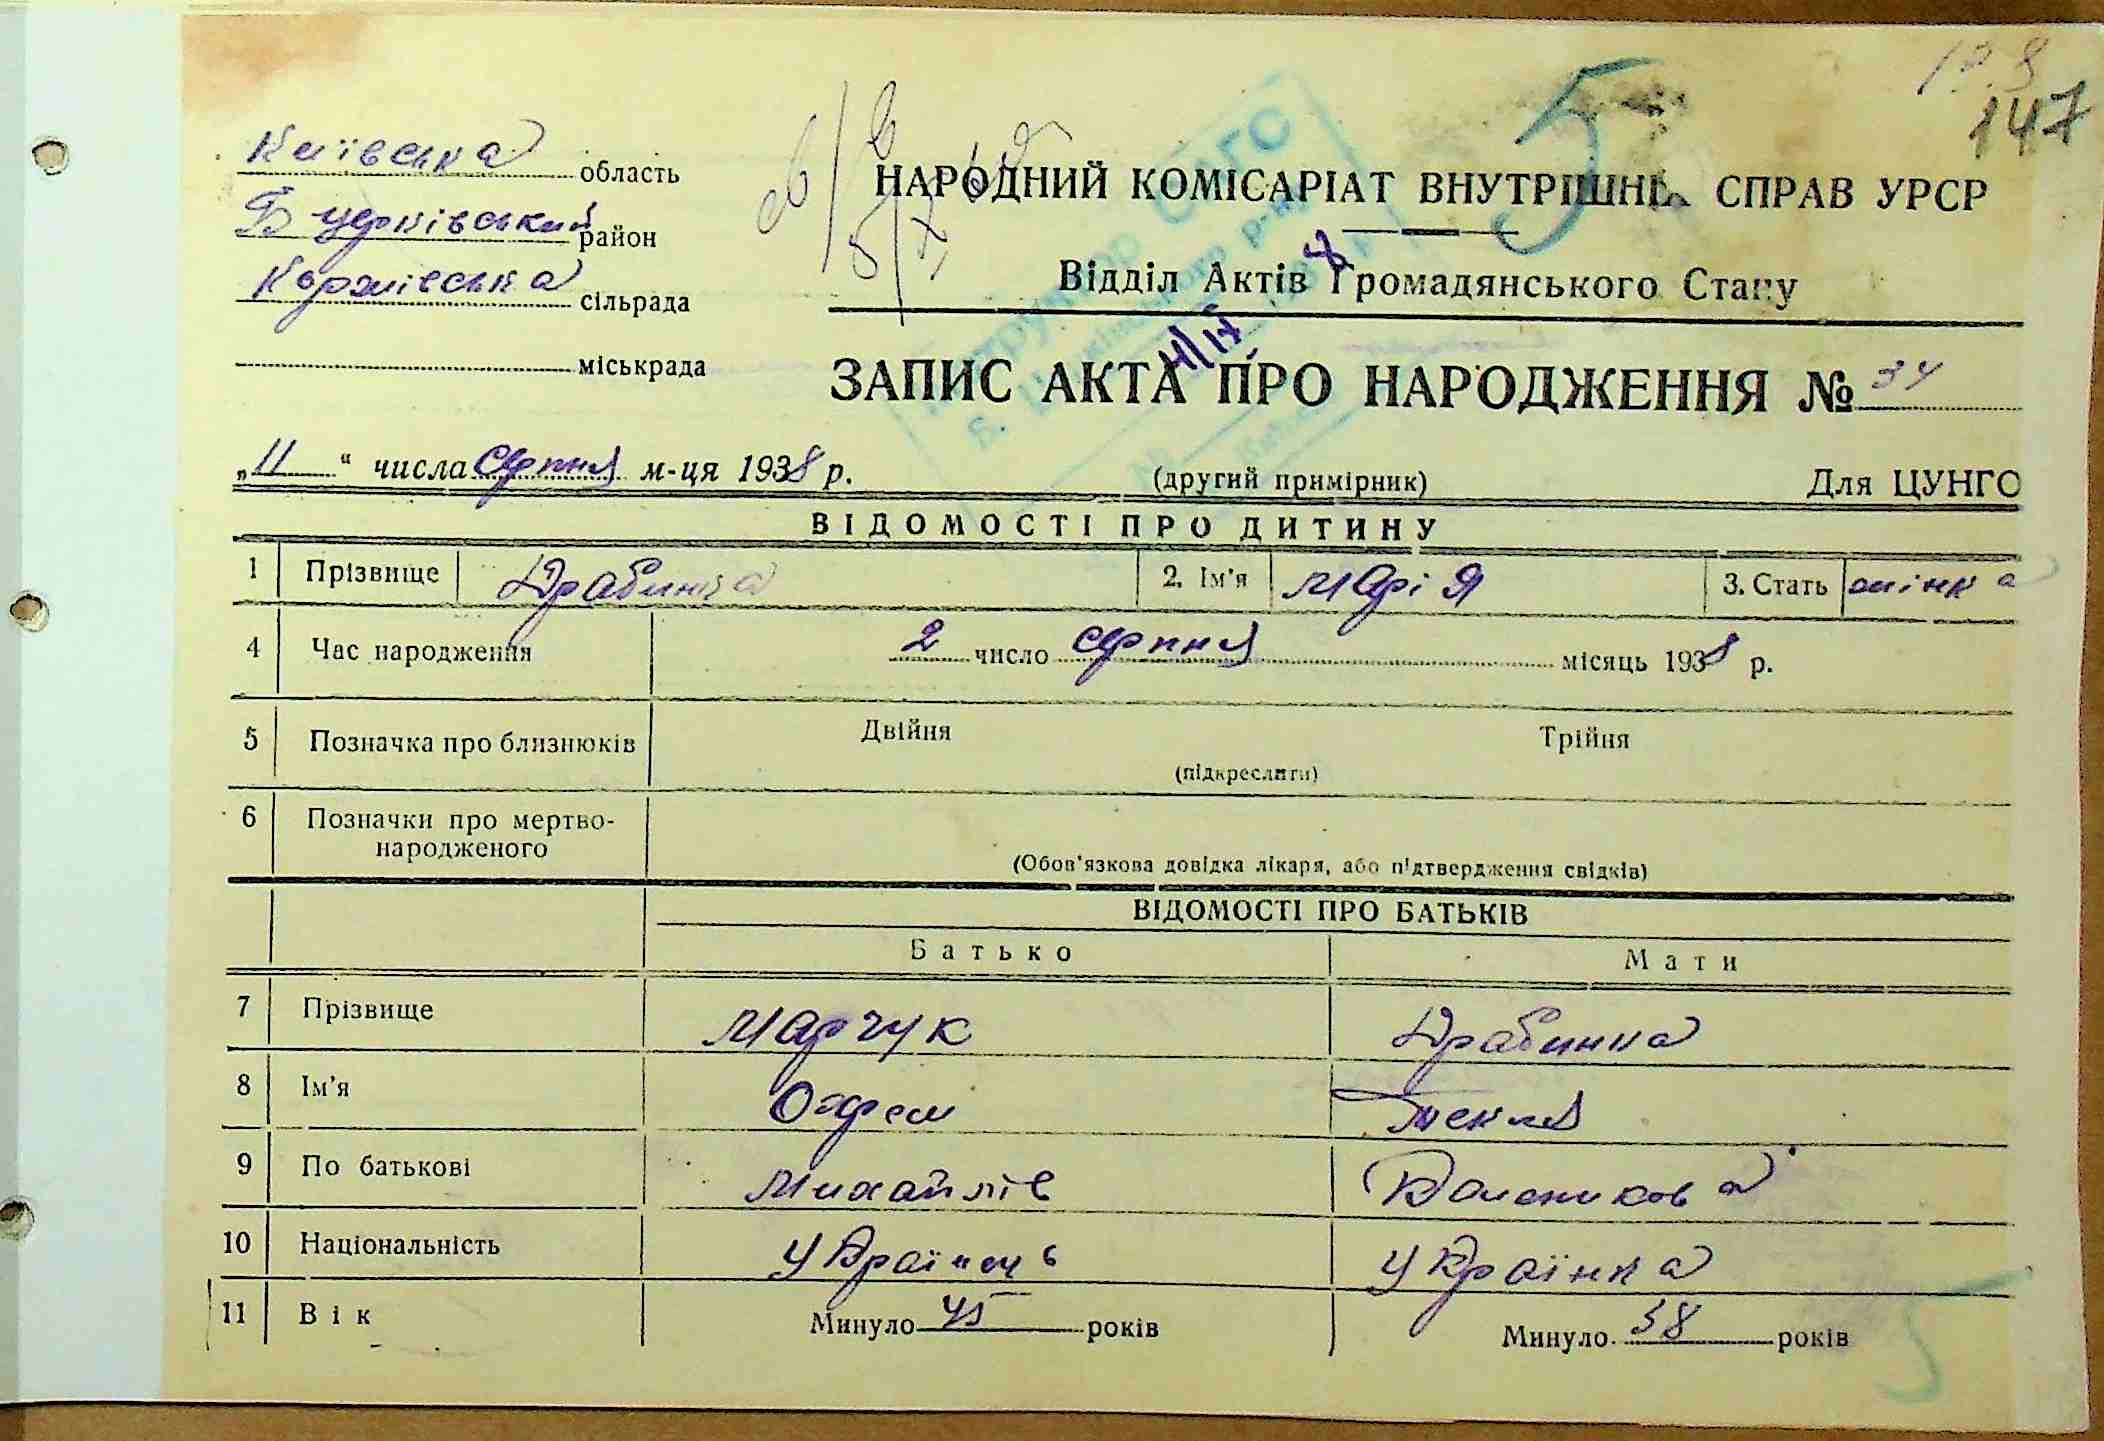 147
Київська область
НАРОДНИЙ КОМІСАРІАТ ВНУТРІШНІХ СПРАВ УРСР
Б церківський район
Відділ Актів Громадянського Стану
сільрада
міськрада
ЗАПИС АКТА ПРО НАРОДЖЕННЯ № 34
„11“ числа серпня м-ця 1938 р. (другий примірник) Для ЦУНГО
ВІДОМОСТІ ПРО ДИТИНУ
1 Прізвище Драбинка 2. Ім'я Марія 3. Стать жінка
4 Час народження 2 число серпня місяць 1938 р.
5 Позначка про близнюків Двійня Трійня
(підкреслити)
6 Позначки про мертво-
народженого
(Обов'язкова довідка лікаря, або підтвердження свідків)
ВІДОМОСТІ ПРО БАТЬКІВ
Батько Мати
7 Прізвище Марчук Драбинка
8 Ім'я Текля
9 По батькові Михайлів
10 Національність Українець Українка
11 Вік Минуло 45 років Минуло 38 років